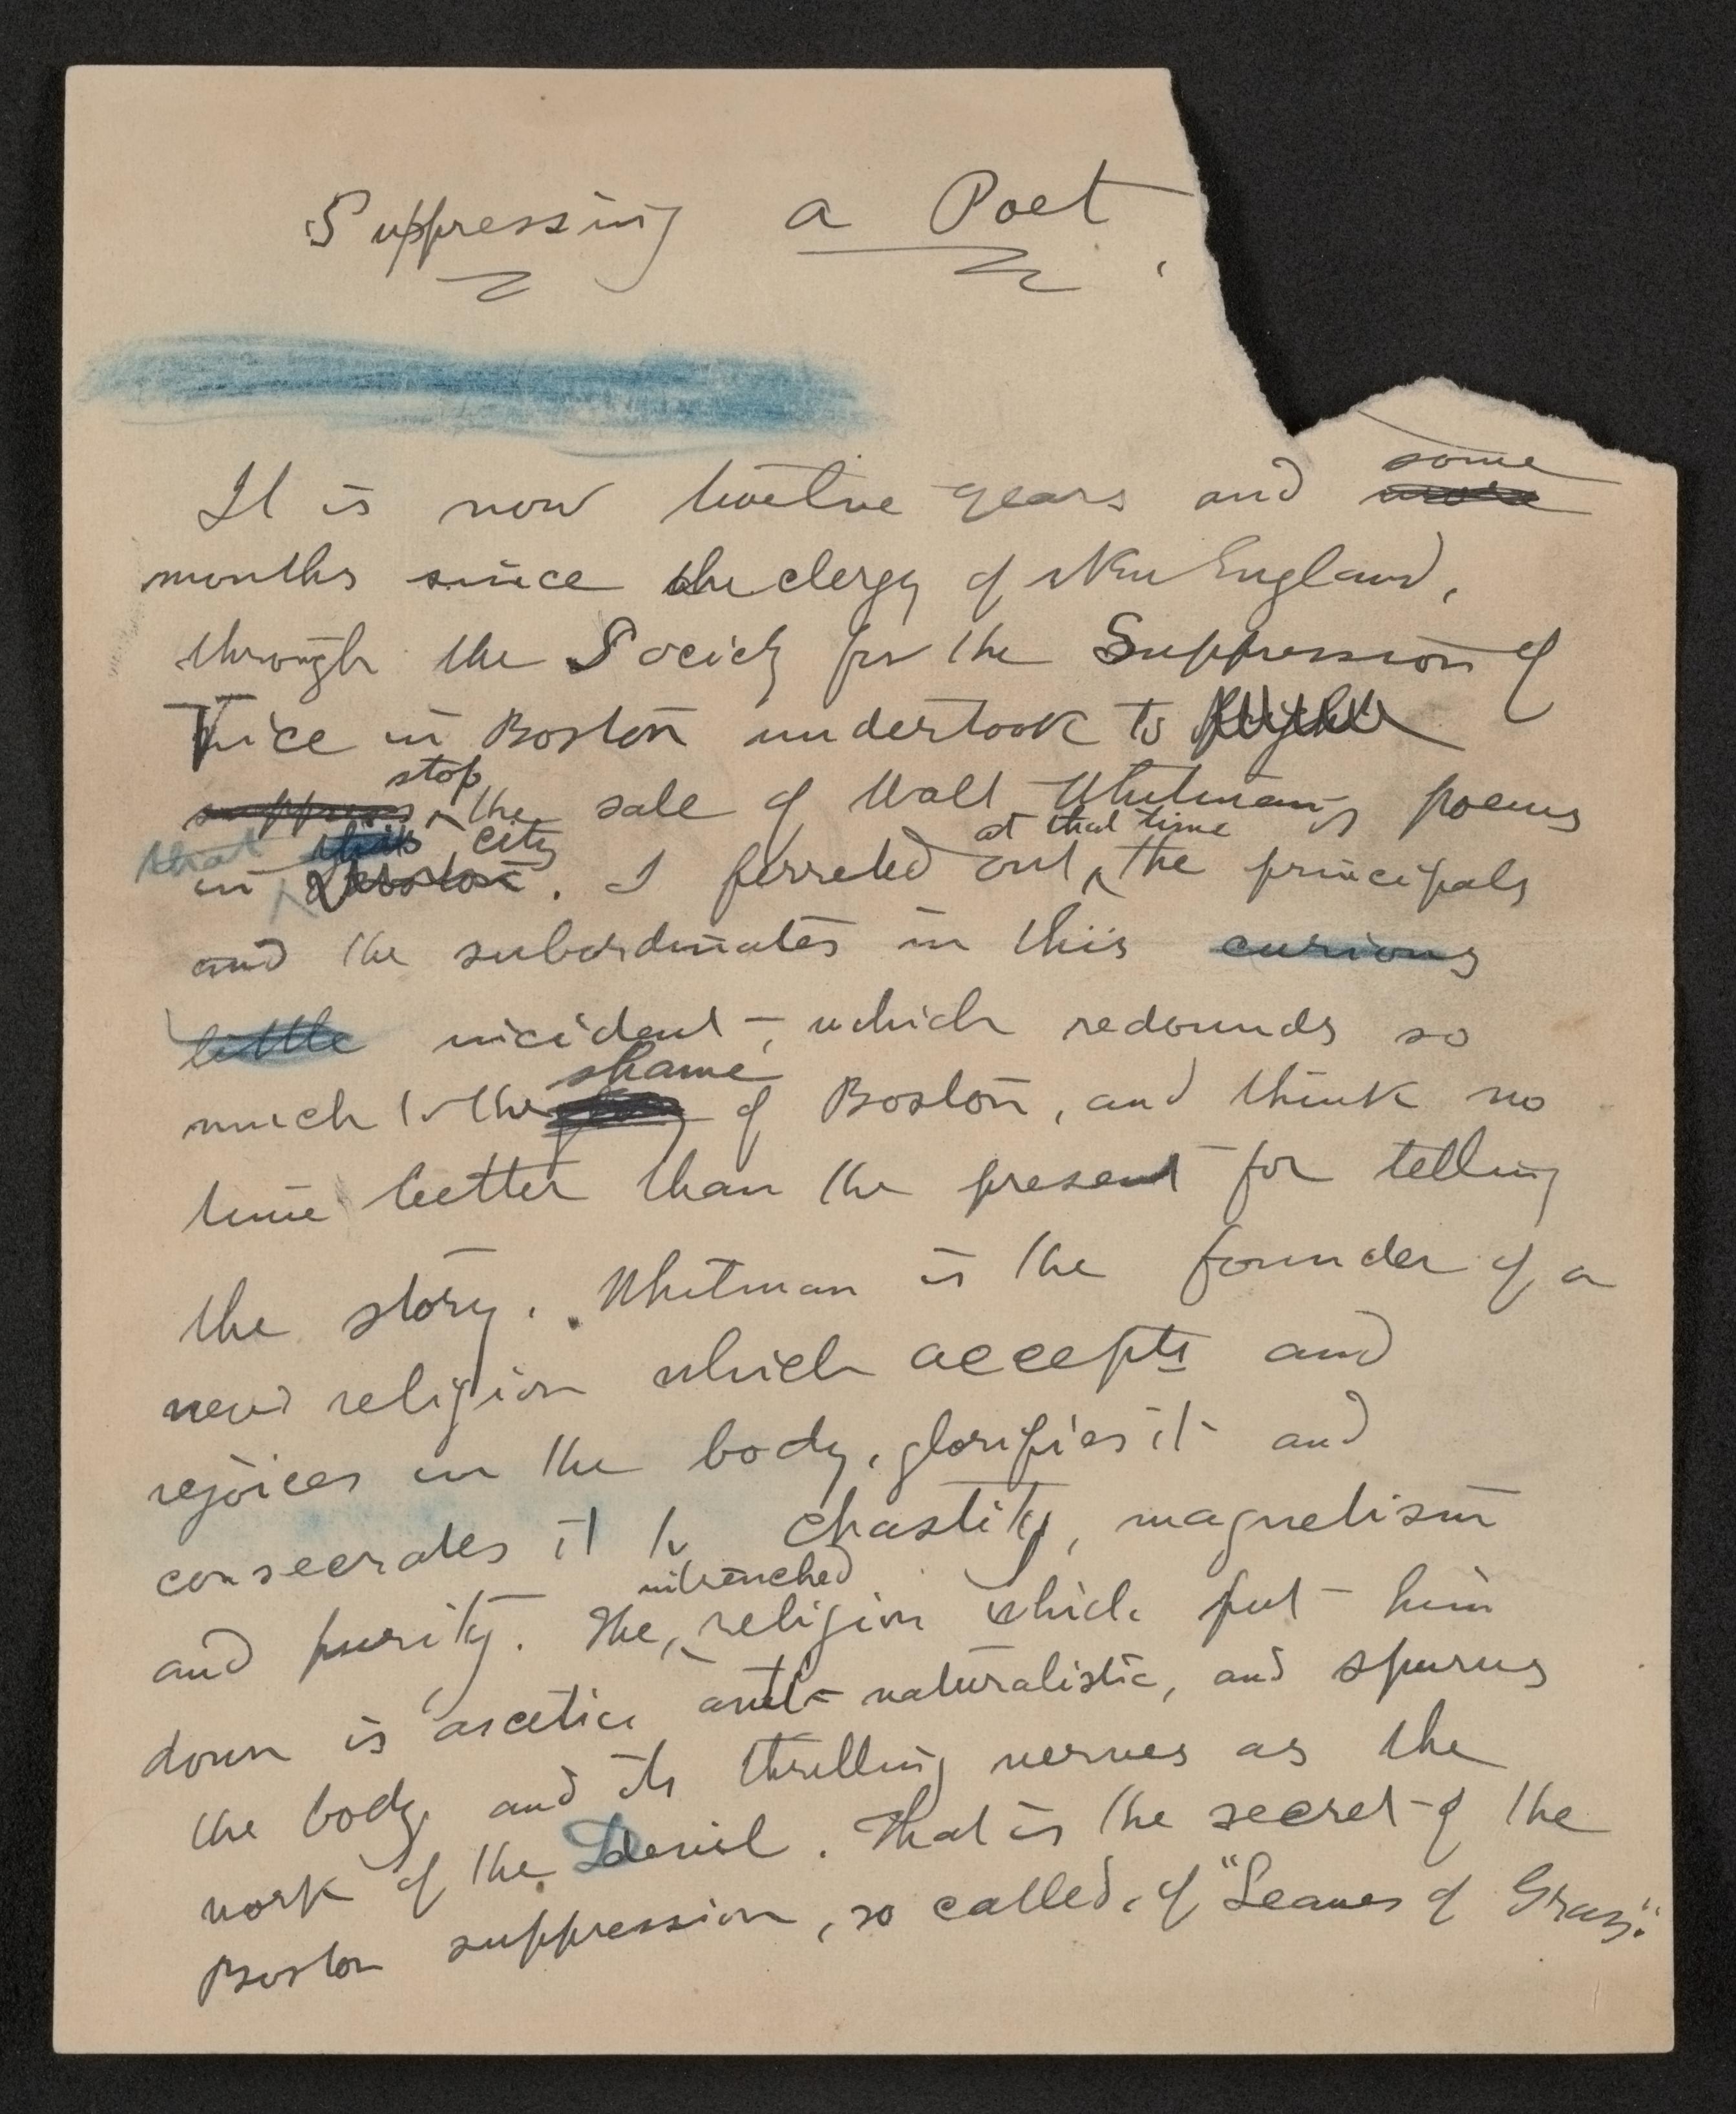 Suppressing a Poet.
It is now twelve years and some
months since the clergy of New England,
through the Society for the Suppression of
Vice in Boston undertook to
suppress stop the sale of Walt Whitman's poems
in that this city Boston. I ferreted out at that time the principals
and the subordinates in this curious
little incident, which redounds so
much to the shame of Boston, and think no
time better than the present for telling
the story. Whitman is the founder of a
new religion which accepts and
rejoices in the body, glorifies it and
consecrates it to chastity, magnetism
and purity. The intrenched religion which put him
down is ascetic anti-naturalistic, and spurns
the body and its thrilling nerves as the
work of the Devil. That is the secret of the
Boston suppression, so called, of "Leaves of Grass."